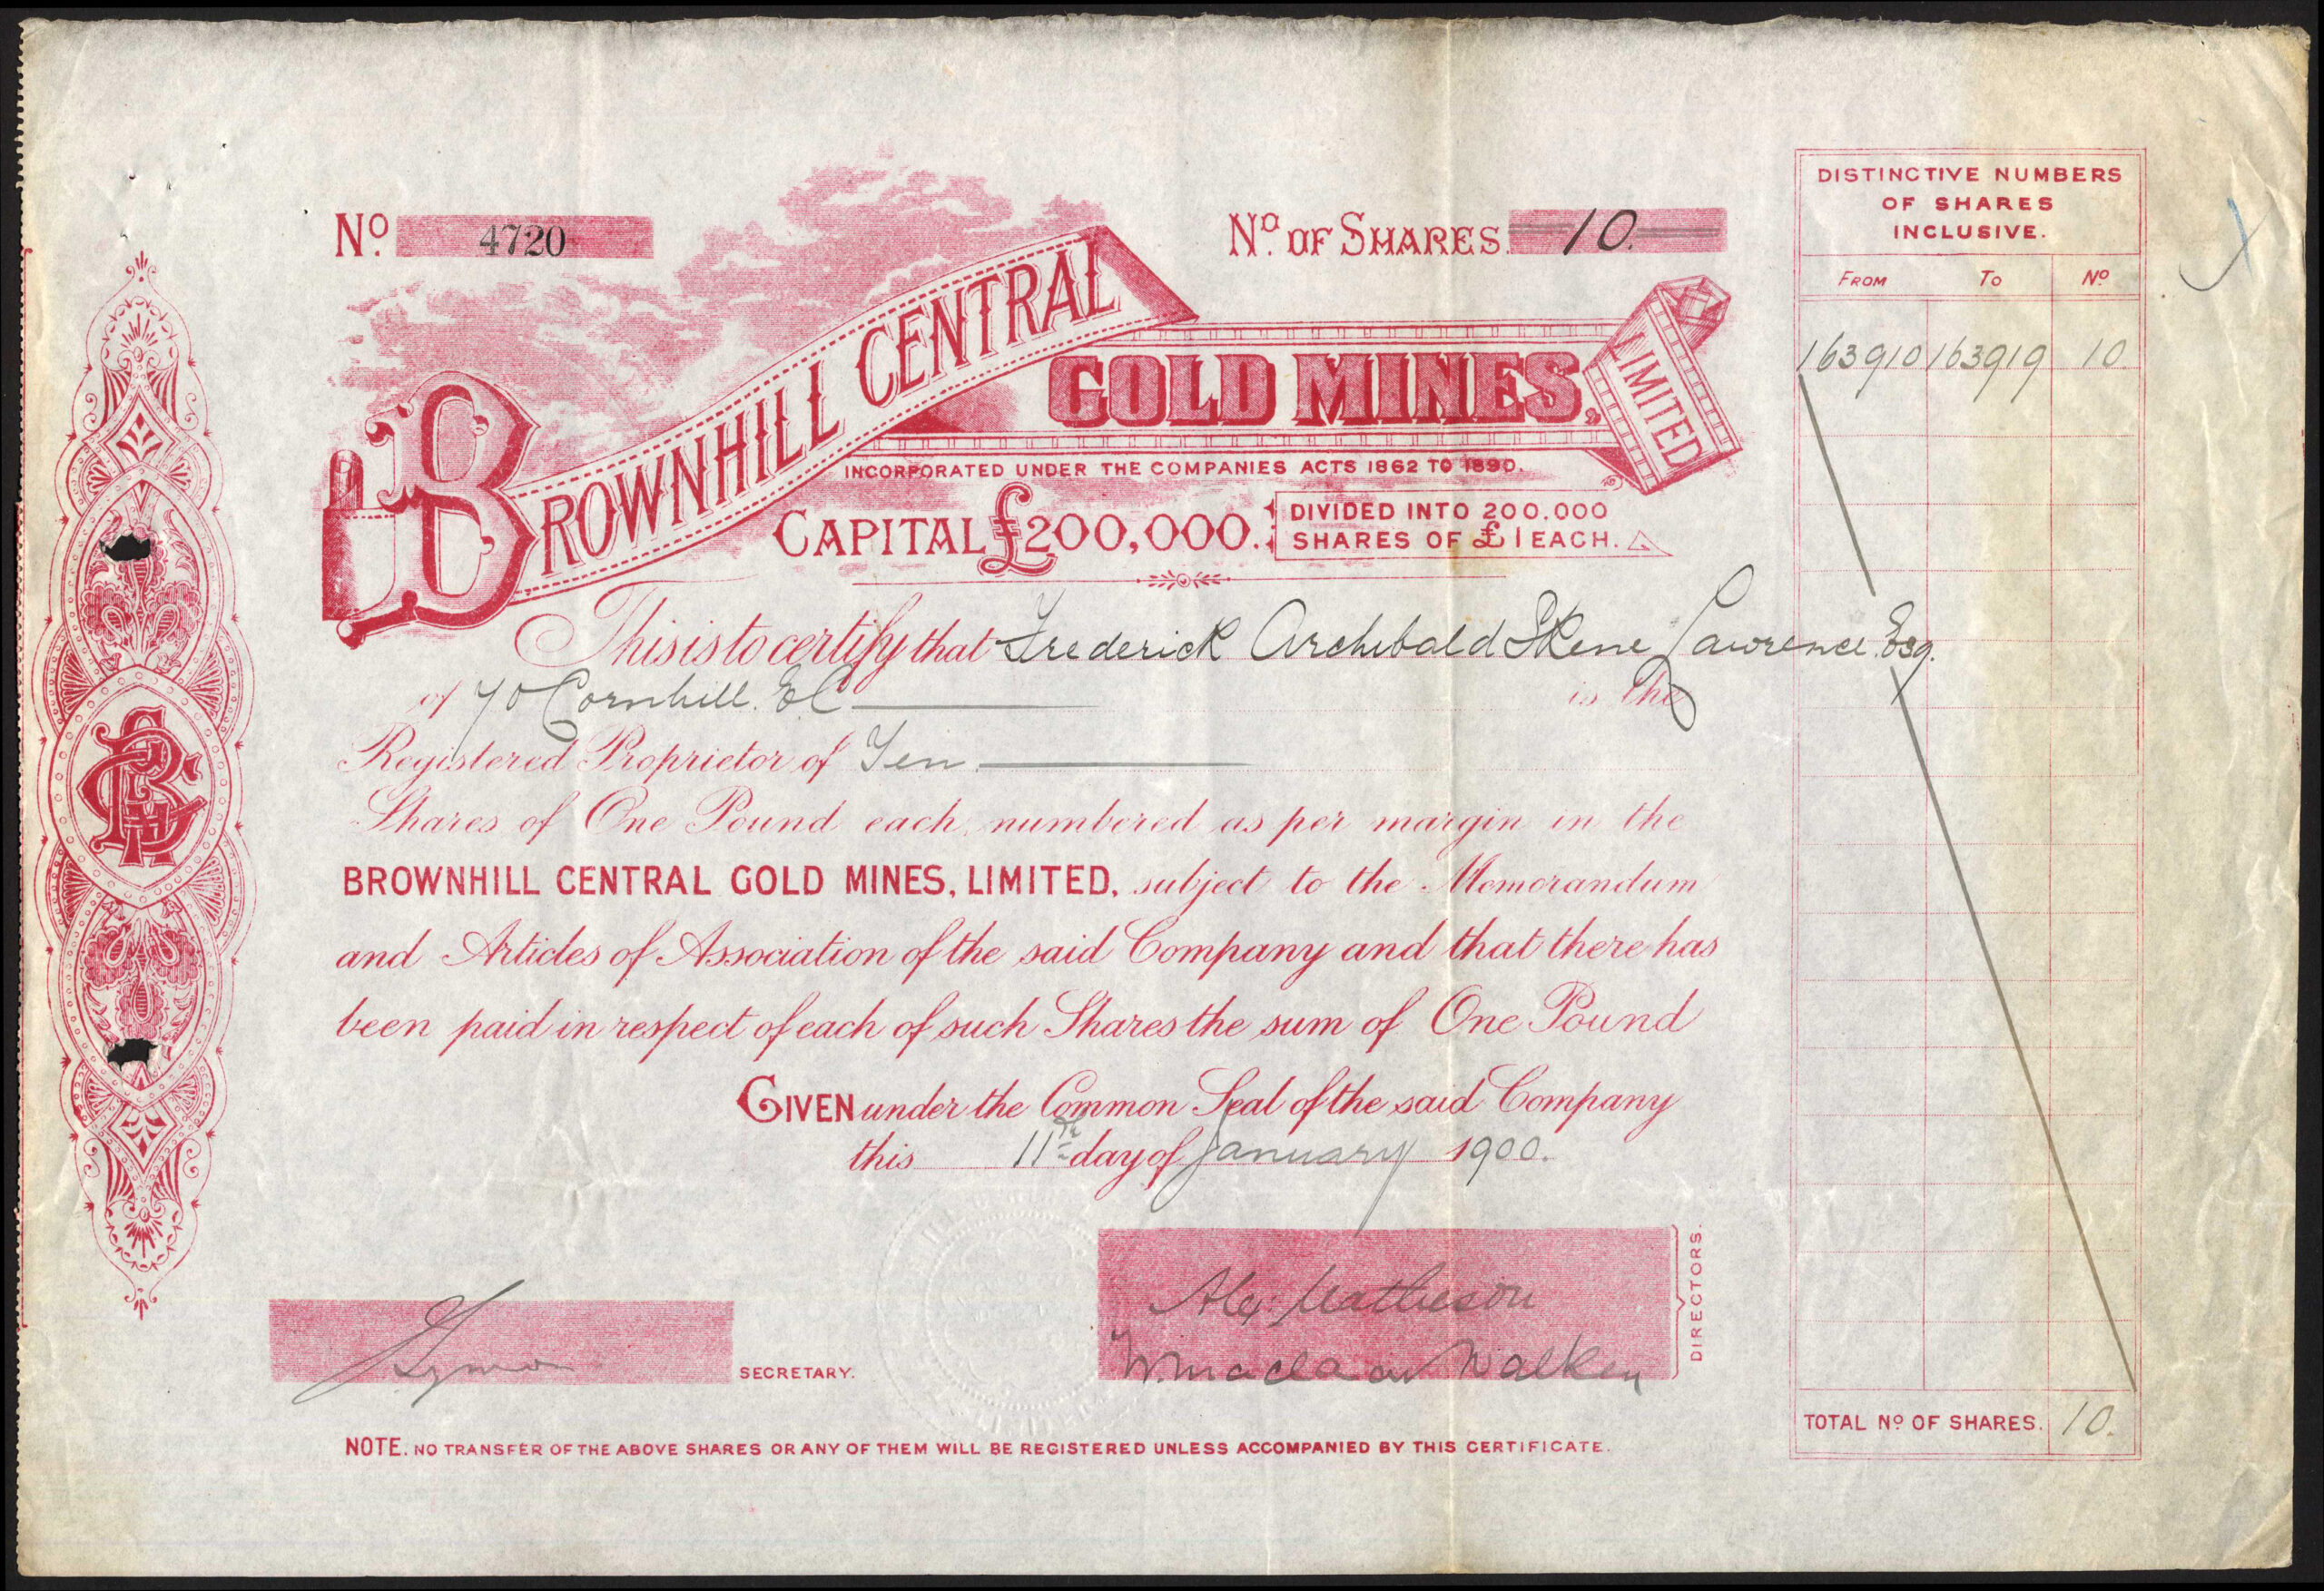 No. 4720
No. OF SHARES. 10.
BROWNHILL CENTRAL
GOLD MINES,
LIMITED
INCORPORATED UNDER THE COMPANIES ACTS 1862 TO 1890.
CAPITAL £200,000.
DIVIDED INTO 200.000
SHARES OF £1 EACH.
This is to certify that Frederick Archibald Skene Lawrence Esq.
of 70 Cornhill. E C is the
Registered Proprietor of Ten
Shares of One Pound each, numbered as per margin in the
BROWNHILL CENTRAL GOLD MINES, LIMITED, subject to the Memorandum
and Articles of Association of the said Company and that there has
been paid in respect of each of such Shares the sum of One Pound
GIVEN under the Common Seal of the said Company
this 11th day of January 1900.
SECRETARY.
Alex: Matheson
Walker
DIRECTORS.
NOTE. NO TRANSFER OF THE ABOVE SHARES OR ANY OF THEM WILL BE REGISTERED UNLESS ACCOMPANIED BY THIS CERTIFICATE.
DISTINCTIVE NUMBERS
OF SHARES
INCLUSIVE.
FROM TO No.
163910 163919 10.
TOTAL No. OF SHARES. 10.